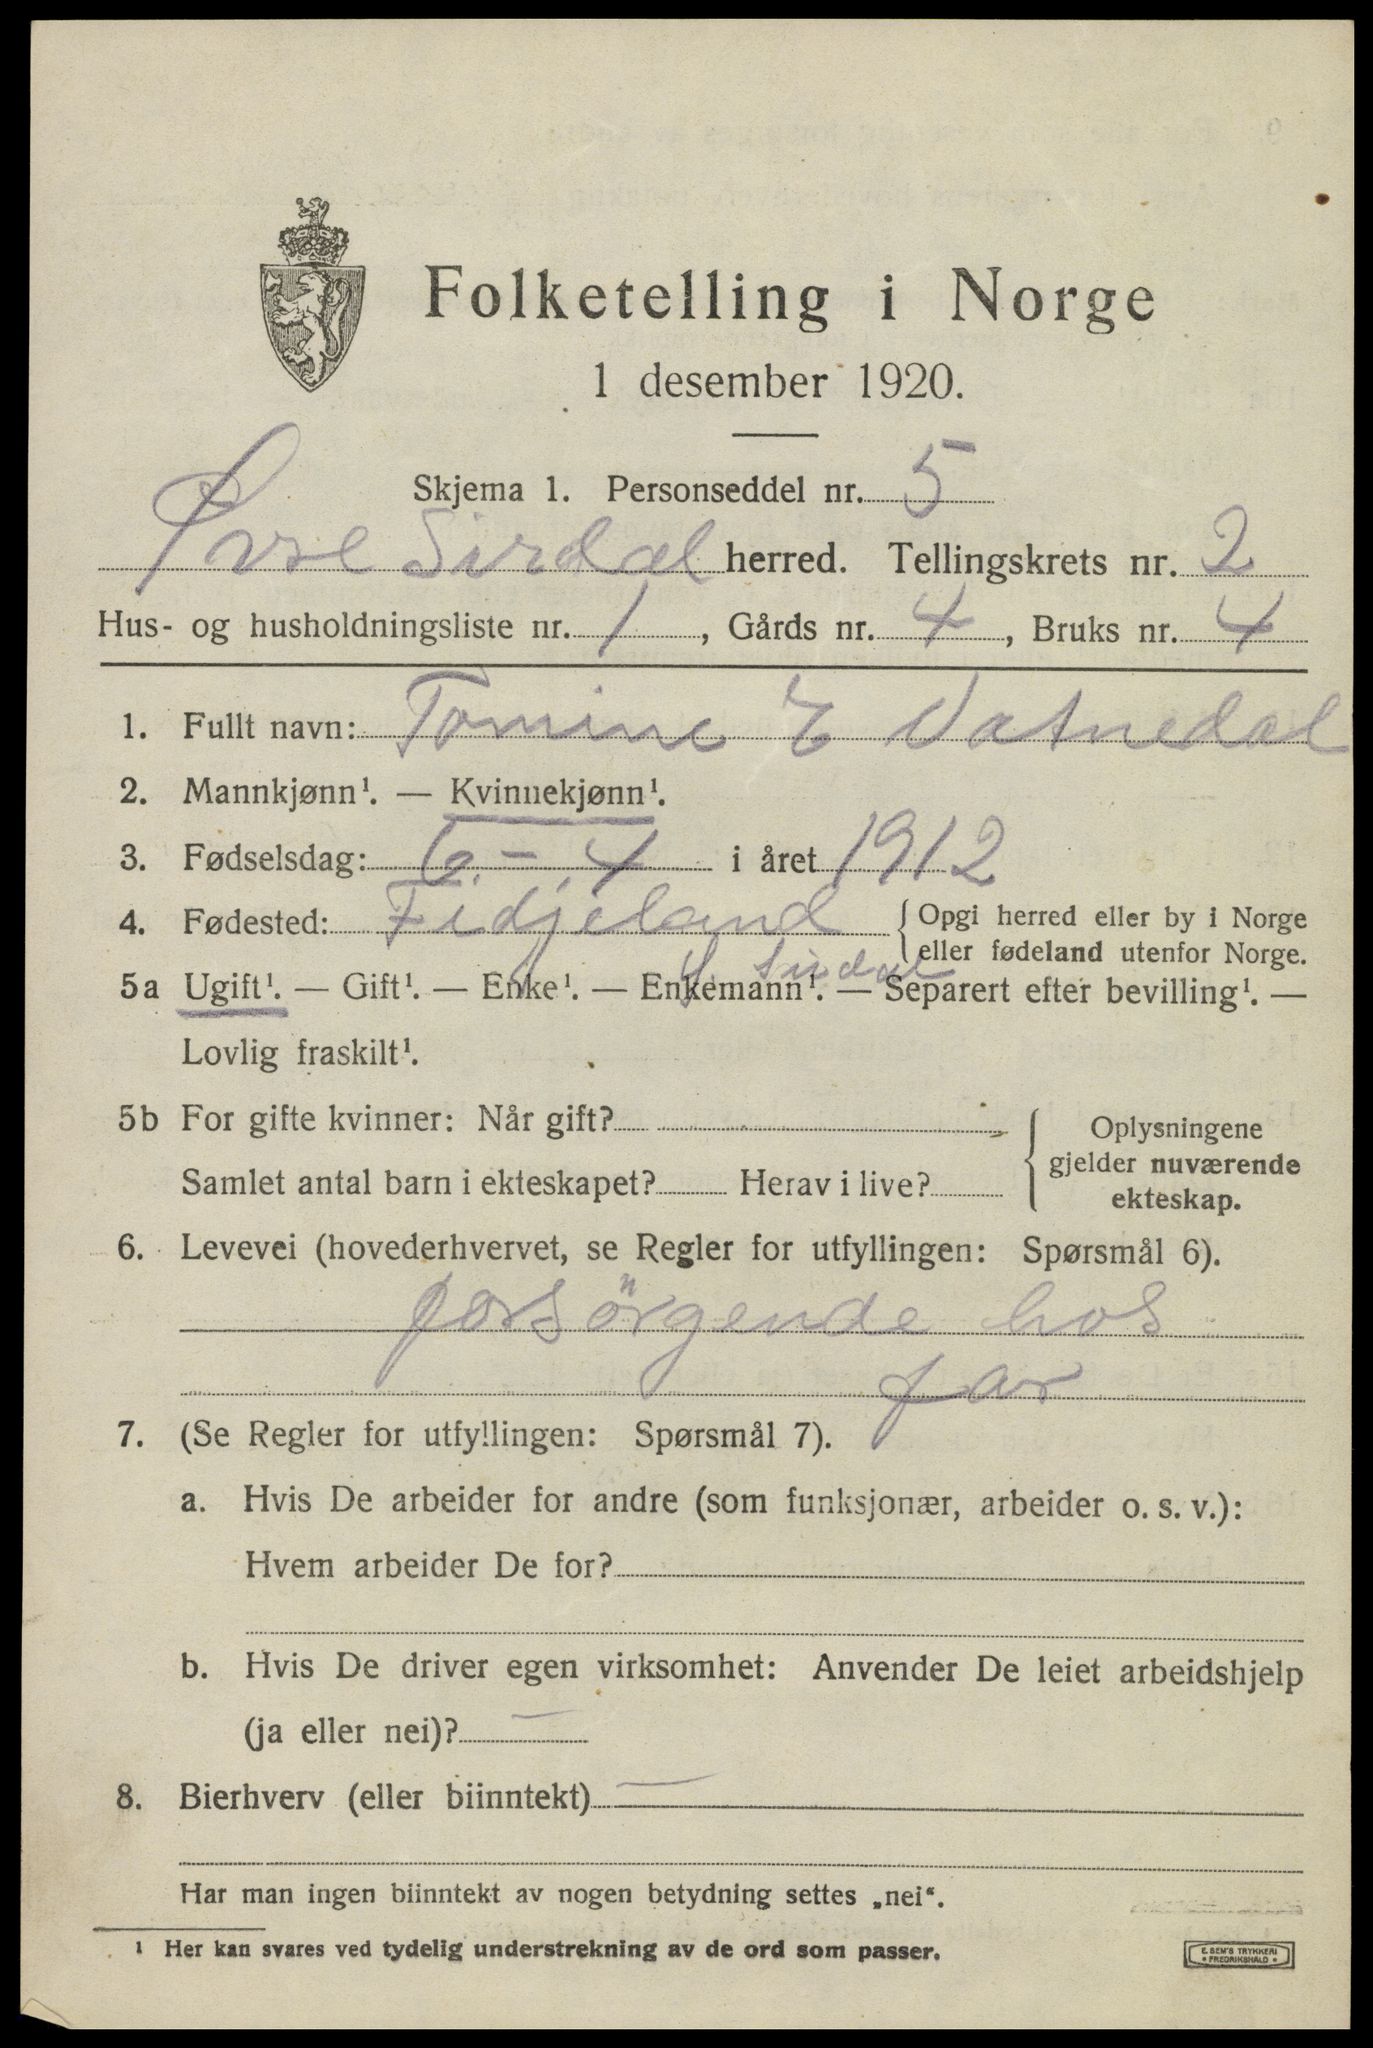 Folketelling i Norge
1 desember 1920.
Skjema 1. Personseddel nr. 5
Øvre Sirdal herred. Tellingskrets nr. 2
Hus- og husholdningsliste nr. 1, Gårds nr. 4, Bruks nr. 4
1. Fullt navn: Tomine E Vatnedal
2. Mannkjønn¹. — Kvinnekjønn¹.
3. Fødselsdag: 6 - 4 i året 1912
4. Fødested: Fidjeland { Opgi herred eller by i Norge
eller fødeland utenfor Norge.
Sirdal
5a Ugift¹. — Gift¹. — Enke¹. — Enkemann¹. — Separert efter bevilling¹. —
Lovlig fraskilt¹.
5b For gifte kvinner: Når gift?
Samlet antal barn i ekteskapet? Herav i live?
{ Oplysningene
gjelder nuværende
ekteskap.
6. Levevei (hovederhvervet, se Regler for utfyllingen: Spørsmål 6).
forsörgende hos
far
7. (Se Regler for utfyllingen: Spørsmål 7).
a. Hvis De arbeider for andre (som funksjonær, arbeider o. s. v.):
Hvem arbeider De for?
b. Hvis De driver egen virksomhet: Anvender De leiet arbeidshjelp
(ja eller nei)? —
8. Bierhverv (eller biinntekt) —
Har man ingen biinntekt av nogen betydning settes „nei“.
¹ Her kan svares ved tydelig understrekning av de ord som passer.
E. SEM'S TRYKKERI
• FREDRIKSHALD •